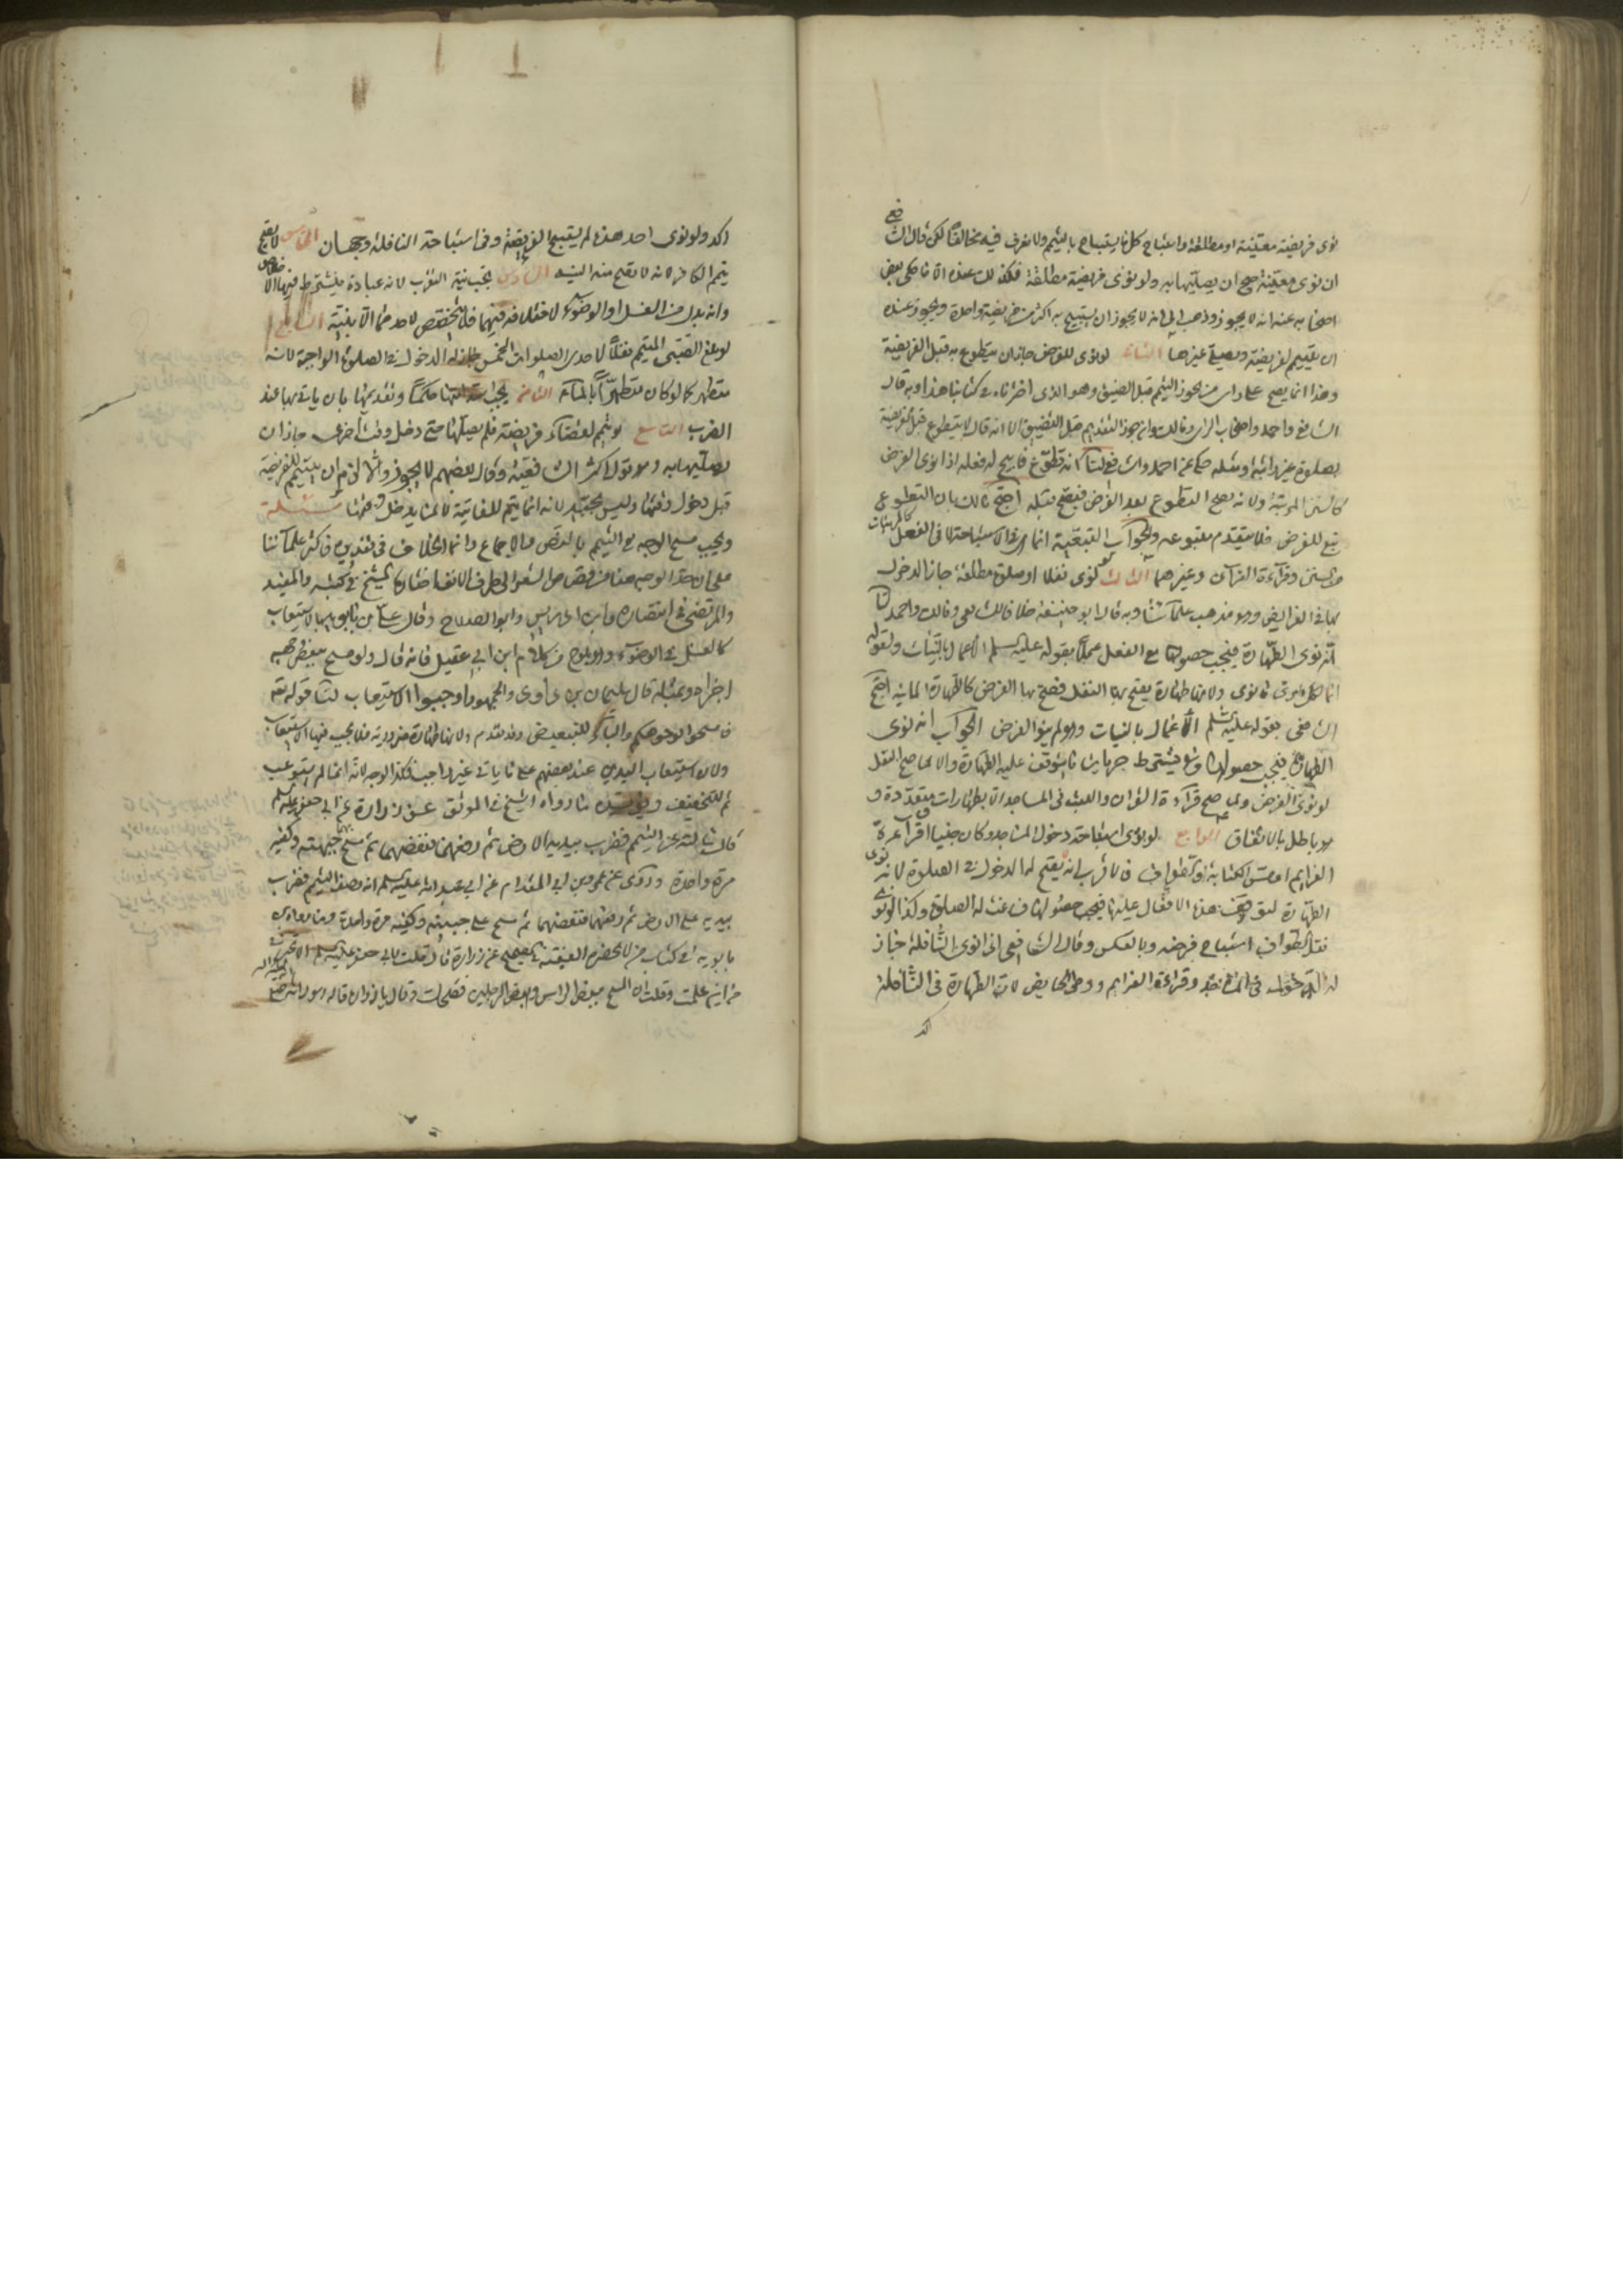 نوى فريضة معينة او مطلقة واستباح كل ما يستباح بالتيمم ولا نعرف فيه مخالفا لكن قال الشافعي
ان نوى معينة صح ان يصليها به ولو نوى فريضة مطلقة فكذلك عنده الا ما حكى بعض
اصحابه عنه انه لا يجوز وذهب الى انه لا يجوز ان يستبيح به اكثر من فريضة واحدة ويجوز عنده
ان يتيمم لفريضة ويصلي غيرها الثاني لو نوى للفرض جاز ان يتطوع به قبل الفريضة
وهذا انما يصح على راى من يجوز التيمم قبل الضيق وهو الذى اخترناه في كتابنا هذا وبه قال
الشافعي واحمد واصحاب الراى وقال مالك وان جوز التقديم قبل التضييق الا انه قال لا يتطوع قبل الفريضة
بصلوة غير راتبة ومثله حكى عن احمد والشافعي لنا انه تطوع فابيح له فعله اذا نوى الفرض
كالسنن المرتبة ولانه يصح التطوع بعد الفرض فيصح قبله احتج مالك بان التطوع
تبع للفرض فلا يتقدم متبوعه والجواب التبعية انما هى في الاستباحة لا في الفعل كالمرتبات
من السنن وقراءة القرآن وغيرهما الثالث لو نوى نفلا او صلوة مطلقة جاز الدخول
بها في الفرايض وهو مذهب علمآئنا وبه قال ابو حنيفة خلافا للشافعي ومالك واحمد لنا
انه نوى الطهارة فيجب حصولها مع الفعل عملا بقوله عليه السلم الاعمال بالنيات ولقوله
انما لكل امرئ ما نوى ولانها طهارة يصح بها النفل فصح بها الفرض كالطهارة المائية احتج
الشافعي بقوله عليه السلم الاعمال بالنيات وهو لم ينو الفرض الجواب انه نوى
الطهارة فيجب حصولها وشع فيشترط جهاينا ما يتوقف عليه الطهارة والا لما صح النفل
لو نوى الفرض ولما صح قراءة القران واللبث في المساجد الا بطهارات متعددة و
هو باطل بالاتفاق الرابع لو نوى استباحة دخول المساجد وكان جنبا او قراءة
العزايم او مس الكتابة او الطواف فالاقرب انه يصح له الدخول في الصلوة لانه نوى
الطهارة لتوقف هذه الافعال عليها فيجب حصولها فساغت له الصلوة وكذا لو نوى
نفل الطواف استباح فرضه وبالعكس وقال الشافعي اذا نوى النافلة جاز
له الدخول في المساجد وقراءة العزايم ووطى الحايض لان الطهارة في النافلة
اكد
اكد ولو نوى احد هذه لم يستبح الفريضة وفي استباحة النافلة وجهان الخامس لا يصح
تيمم الكافر لانه لا يصح منه النية السادس يجب نية التقرب لانه عبادة فيشترط فيها الاخلاص
وانه بدل من الغسل او الوضوء لاختلافه فيهما فلا يتخصص لاحدهما الا بنية السابع
لو بلغ الصبى المتيمم نفلا لاحدى الصلوات الخمس جاز له الدخول في الصلوة الواجبة لانه
متطهر كما لو كان متطهرا بالمآء الثامن يجب استدامتها حكما وتقديمها بان ياتي بها عند
الضرب التاسع لو تيمم لقضآء فريضة فلم يصلها حتى دخل وقت اخرى جاز ان
يصليها به وهو قول اكثر الشافعية وقال بعضهم لا يجوز والا لزم ان يتيمم للفريضة
قبل دخول وقتها وليس بجيد لانه انما يتم للفايتة لا لما يدخل وقتها مسئلة
ويجب مسح الوجه في التيمم بالنص والاجماع وانما الخلاف في تقديره فاكثر علمآئنا
على ان حد الوجه هنا من قصاص الشعر الى طرف الانف اختاره الشيخ في كتبه والمفيد
والمرتضى في انتصاره وابن ادريس وابو الصلاح وقال على بن بابويه بالاستيعاب
كالغسل في الوضوء ويلوح من كلام ابن ابي عقيل فانه قال ولو مسح ببعض وجهه
اجزاه وبمثله قال سليمان بن داود والجمهور اوجبوا الاستيعاب لنا قوله تع
فامسحوا بوجوهكم والبآء للتبعيض وقد تقدم ولانها طهارة ضرورية فلا يجب فيها الاستيعاب
ولان استيعاب اليدين عند بعضهم على ما ياتي غير واجب فكذا الوجه لانه انما لم يستوعب
ثم للتخفيف ويؤيده ما رواه الشيخ في الموثق عن زرارة عن ابي جعفر عليه السلم
قال سالته عن التيمم فضرب بيديه الارض ثم رفعهما فنفضهما ثم مسح بهما جبهته وكفيه
مرة واحدة وروى عن عمرو بن ابي المقدام عن ابي عبد الله عليه السلم انه وصف التيمم فضرب
بيديه على الارض ثم رفعهما فنفضهما ثم مسح على جبينه وكفيه مرة واحدة وما رواه ابن
بابويه في كتاب من لا يحضره الفقيه في الصحيح عن زرارة قال قلت لابي جعفر عليه السلم الا تخبرني
من اين علمت وقلت ان المسح ببعض الراس وبعض الرجلين فضحك وقال يا زرارة قاله رسول الله صلى الله عليه واله